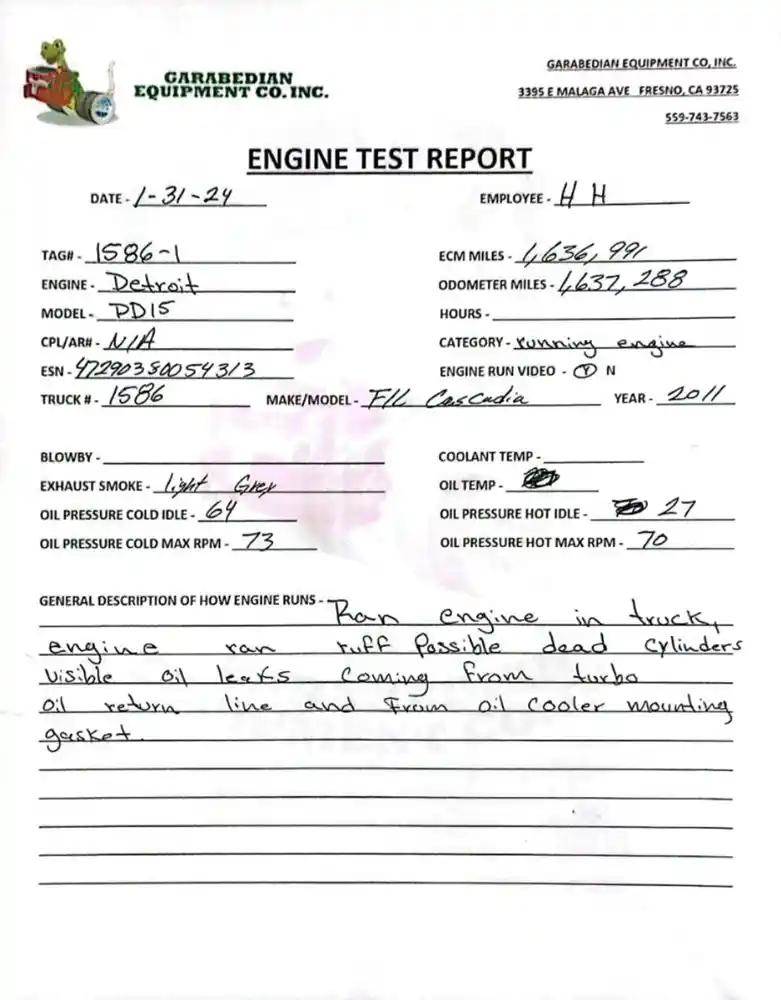 GARABEDIAN
EQUIPMENT CO. INC.
GARABEDIAN EQUIPMENT CO, INC.
3395 E MALAGA AVE FRESNO, CA 93725
559-743-7563
ENGINE TEST REPORT
DATE - 1-31-24 EMPLOYEE - H H
TAG# - 1586-1 ECM MILES - 1,636,991
ENGINE - Detroit ODOMETER MILES - 1,637,288
MODEL - DD15 HOURS -
CPL/AR# - N/A CATEGORY - running engine
ESN - 472903S0054313 ENGINE RUN VIDEO - Y N
TRUCK # - 1586 MAKE/MODEL - F/L Cascadia YEAR - 2011
BLOWBY - COOLANT TEMP -
EXHAUST SMOKE - light Grey OIL TEMP -
OIL PRESSURE COLD IDLE - 64 OIL PRESSURE HOT IDLE - 27
OIL PRESSURE COLD MAX RPM - 73 OIL PRESSURE HOT MAX RPM - 70
GENERAL DESCRIPTION OF HOW ENGINE RUNS - Ran engine in truck,
engine ran ruff Possible dead cylinders
visible oil leaks coming from turbo
oil return line and From oil cooler mounting
gasket.